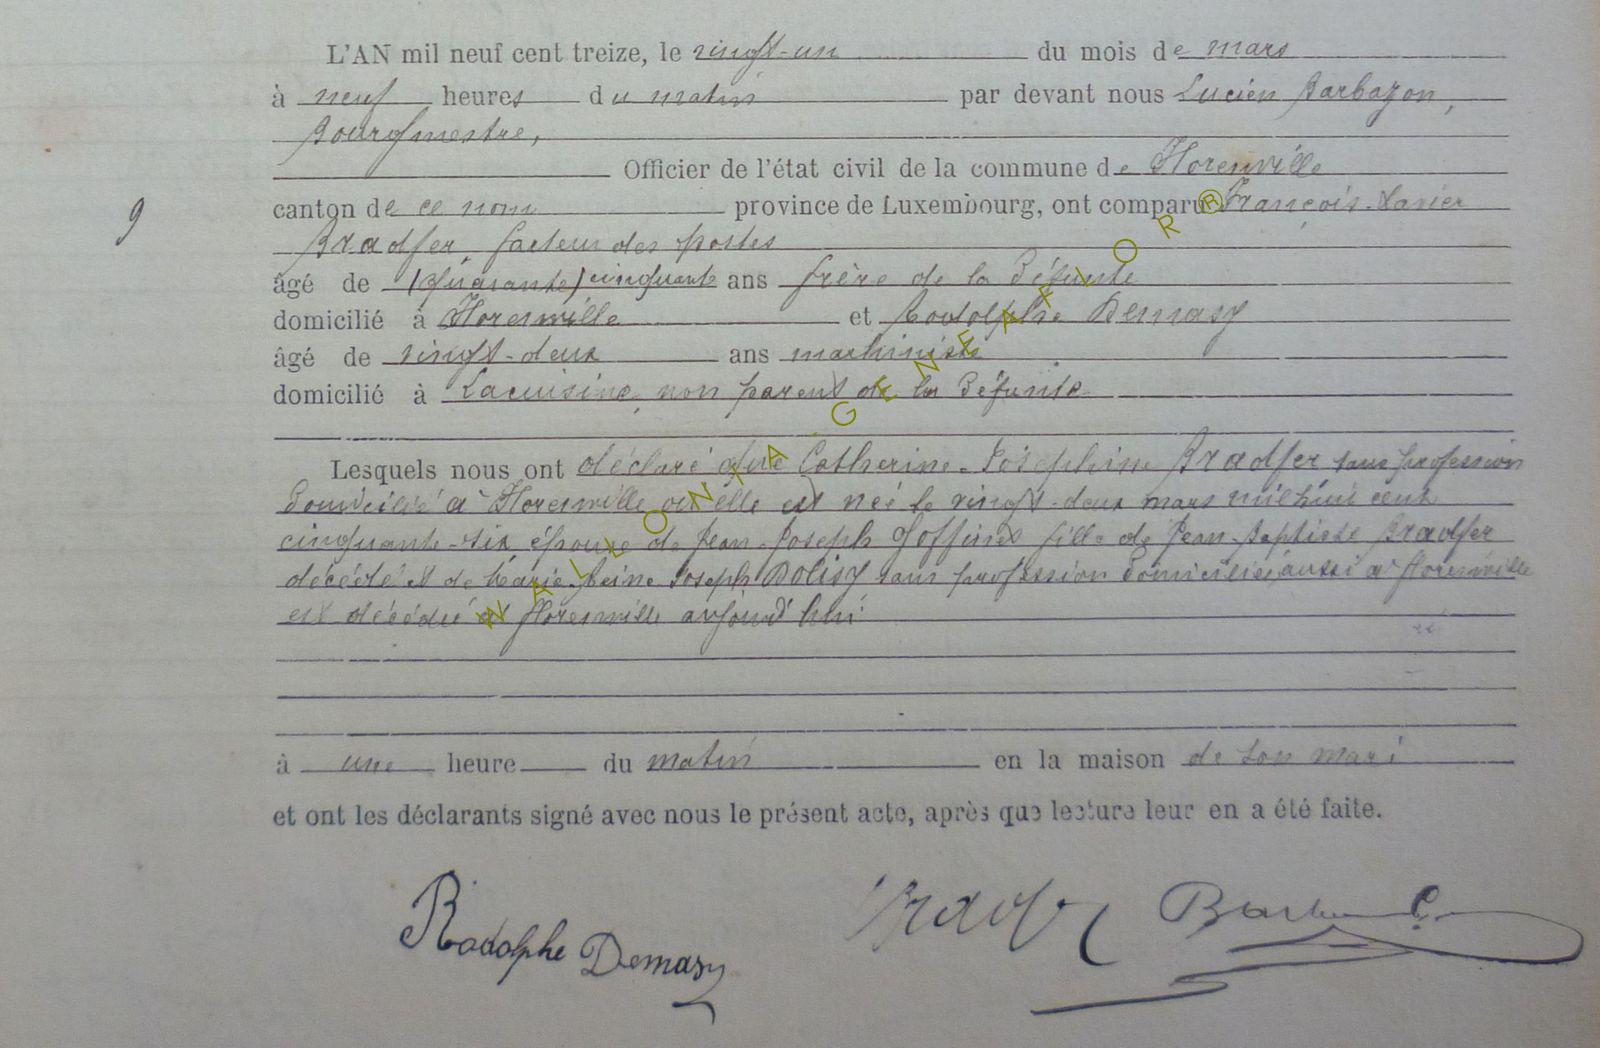 L'AN mil neuf cent treize, le vingt-un du mois de mars
à neuf heures du matin par devant nous Lucien Barbazon,
Bourgmestre,
Officier de l'état civil de la commune de Florenville
9 canton de ce nom province de Luxembourg, ont comparu François-Xavier
Bradfer, facteur des postes
âgé de (quarante) cinquante ans frère de la Défunte
domicilié à Florenville et Rodolphe Demasy
âgé de vingt-deux ans machiniste
domicilié à Lacuisine, non parent de la Défunte
Lesquels nous ont déclaré que Catherine-Joséphine Bradfer sans profession
Domiciliée à Florenville où elle est née le vingt-deux mars mil huit cent
cinquante-six, épouse de Jean-Joseph Goffinet fille de Jean-Baptiste Bradfer
décédé et de Marie-Jeine Joseph Dolisy sans profession Domiciliée aussi à Florenville
est décédée à Florenville aujourd'hui
à une heure du matin en la maison de son mari
et ont les déclarants signé avec nous le présent acte, après que lecture leur en a été faite.
Rodolphe Demasy Bradfer
WALLONIA GENEAFLOR®